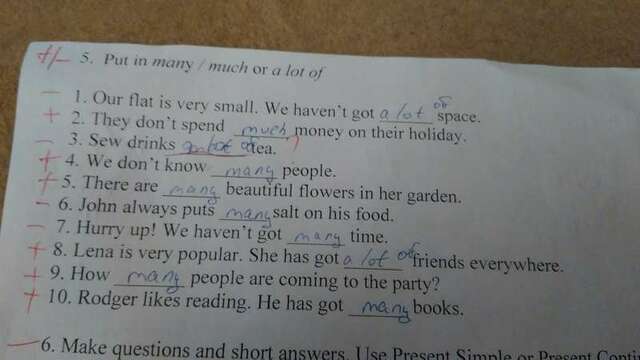 +/- 5. Put in many / much or a lot of
- 1. Our flat is very small. We haven't got a lot of space.
+ 2. They don't spend much money on their holiday.
- 3. Sew drinks a lot of tea.
+ 4. We don't know many people.
+ 5. There are many beautiful flowers in her garden.
- 6. John always puts many salt on his food.
- 7. Hurry up! We haven't got many time.
+ 8. Lena is very popular. She has got a lot of friends everywhere.
+ 9. How many people are coming to the party?
+ 10. Rodger likes reading. He has got many books.
- 6. Make questions and short answers. Use Present Simple or Present Conti